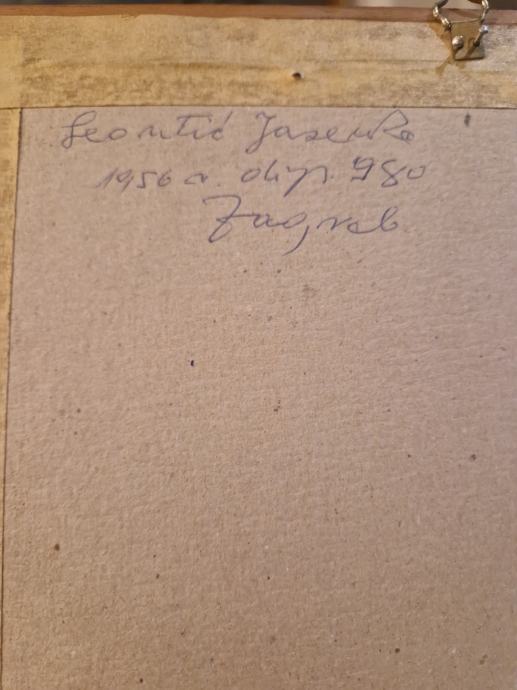 Leontić Jasenka
1956 a. dip. 980
Zagreb